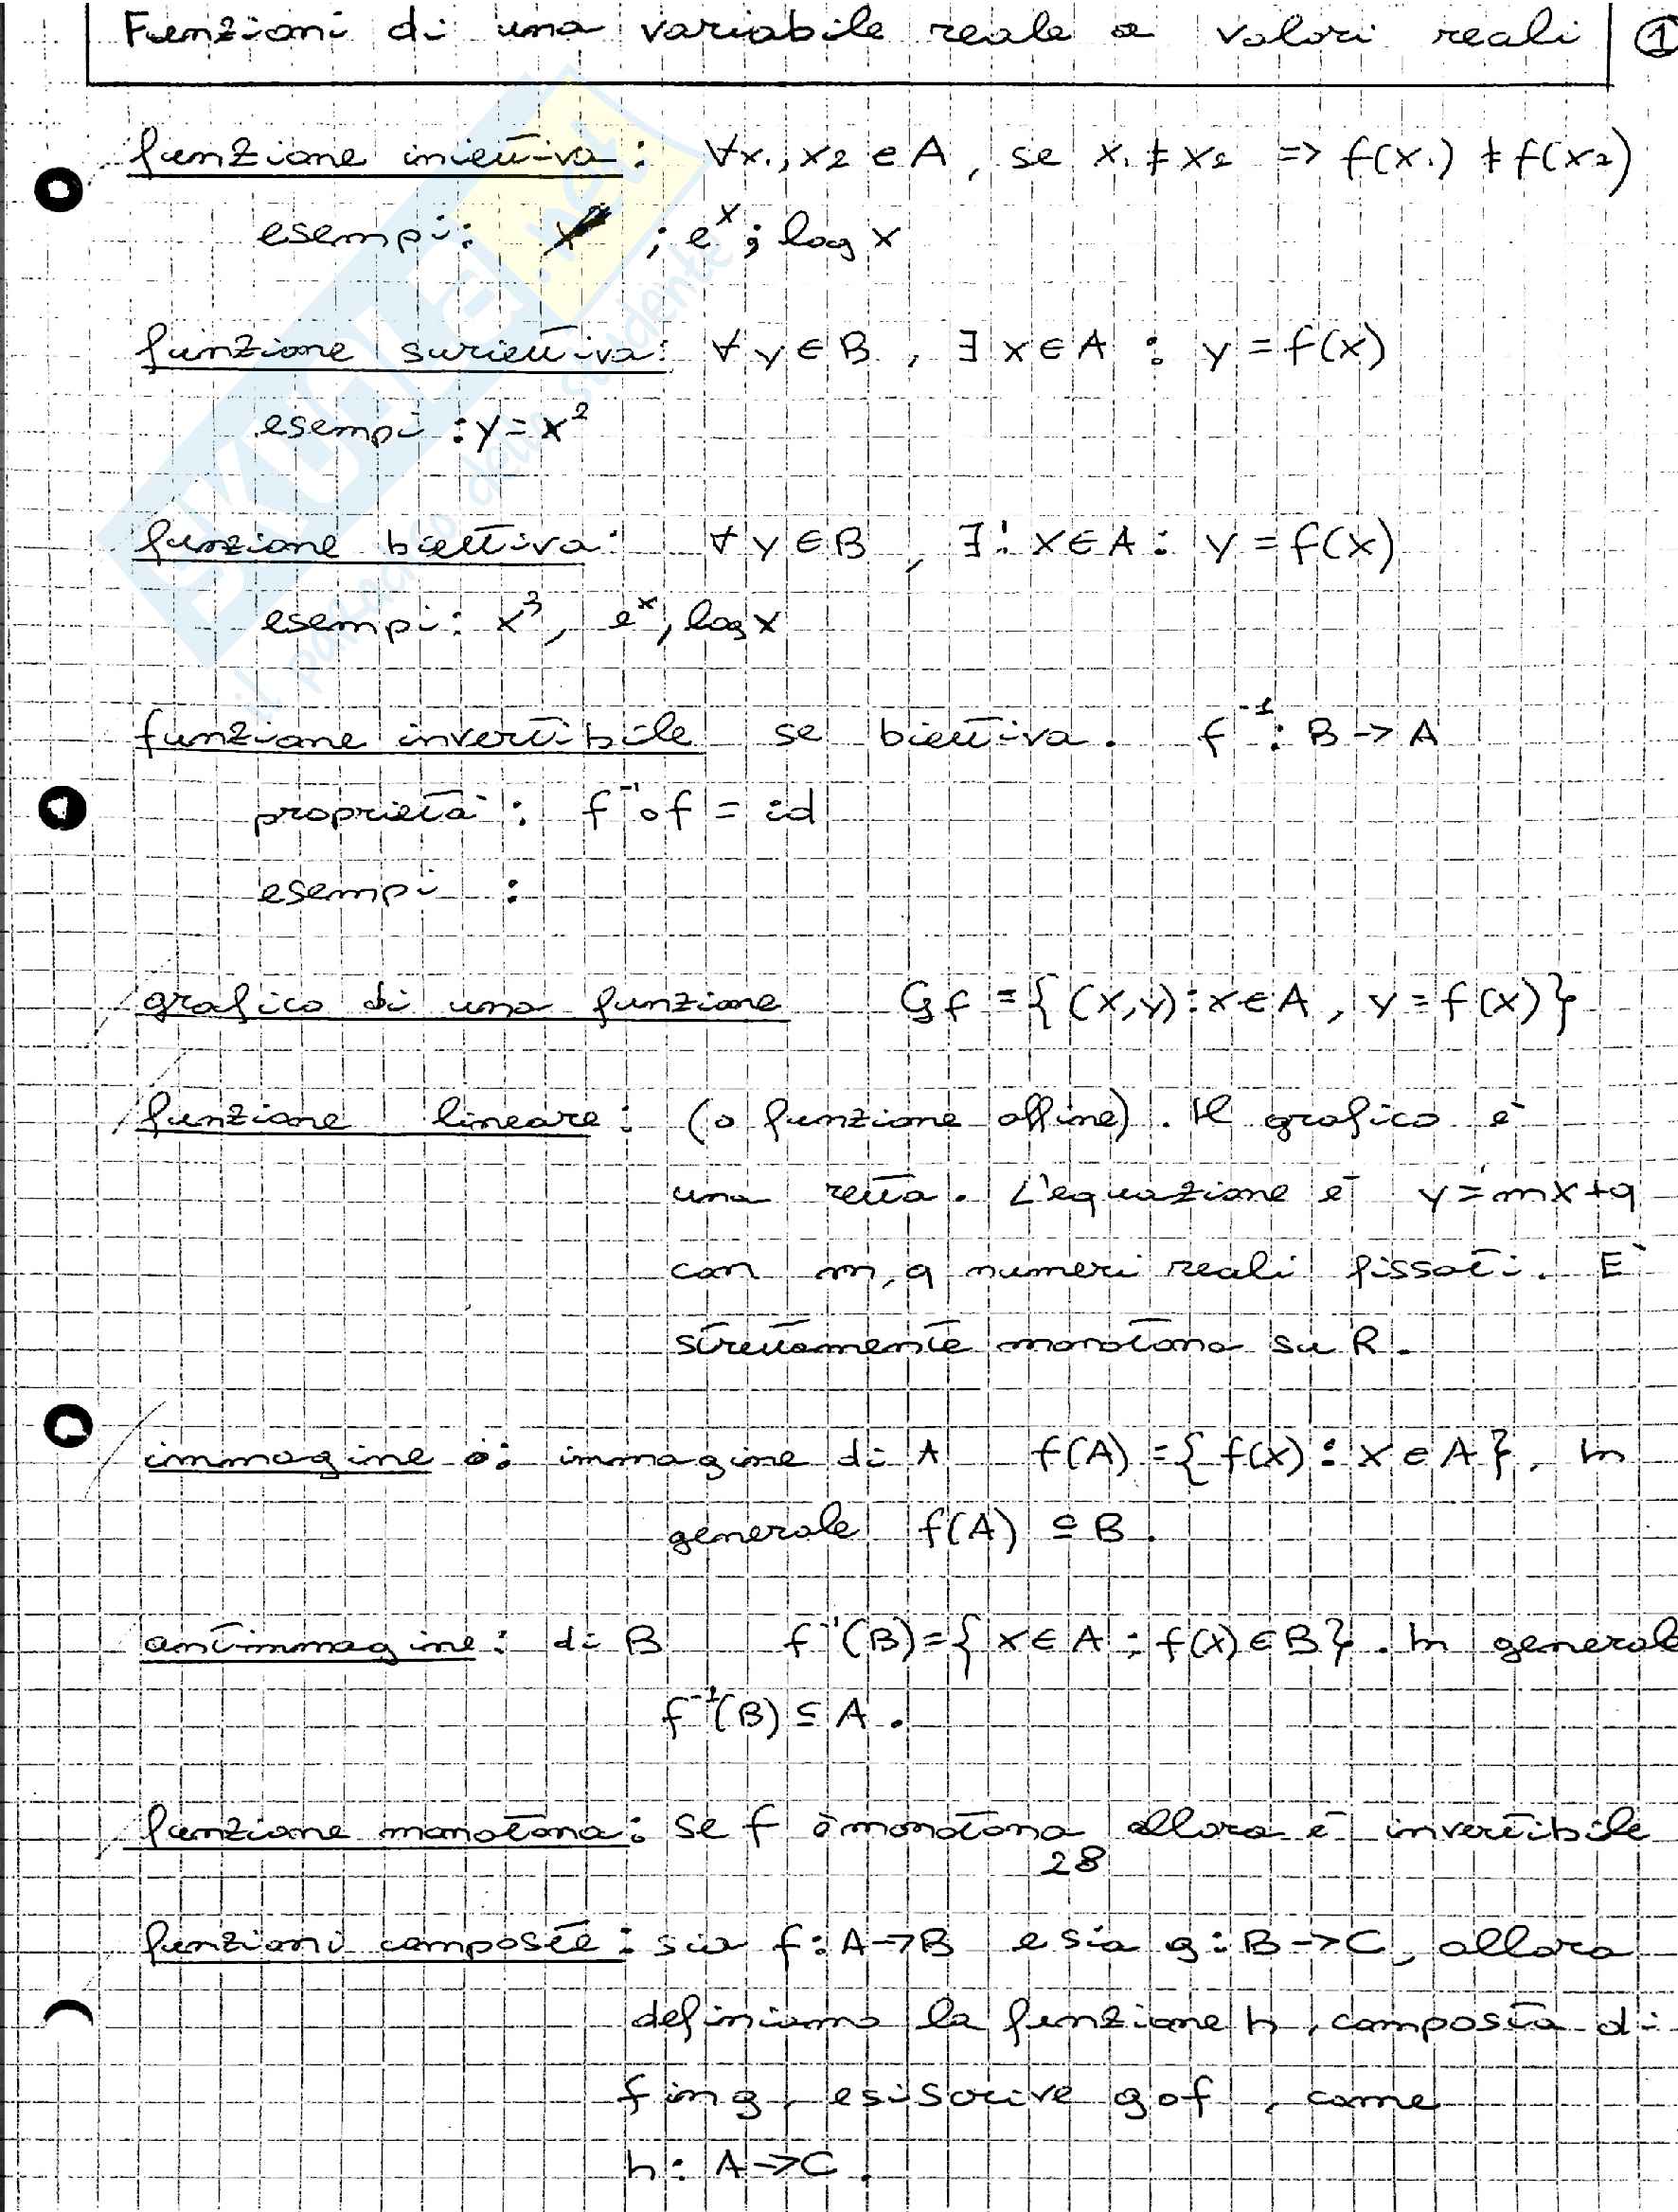 Funzioni di una variabile reale a valori reali 1
funzione iniettiva: ∀x₁,x₂ ∈ A, se x₁ ≠ x₂ => f(x₁) ≠ f(x₂)
esempi: ; eˣ; log x
funzione suriettiva: ∀ y ∈ B, ∃ x ∈ A : y = f(x)
esempi: y = x²
funzione biettiva: ∀ y ∈ B, ∃! x ∈ A: y = f(x)
esempi: x³, eˣ, log x
funzione invertibile se biettiva. f⁻¹: B -> A
proprietà: f⁻¹∘f = id
esempi :
grafico di una funzione Gf = {(x,y): x ∈ A, y = f(x)}
funzione lineare: (o funzione affine). Il grafico è
una retta. L'equazione è y = mx+q
con m,q numeri reali fissati. È
strettamente monotona su R.
immagine : immagine di A f(A) = {f(x) : x ∈ A}. In
generale f(A) ⊆ B.
antimmagine: di B f⁻¹(B) = {x ∈ A : f(x) ∈ B}. In generale
f⁻¹(B) ⊆ A.
funzione monotona: se f è monotona allora è invertibile
28
funzioni composte: sia f: A->B e sia g: B->C, allora
definiamo la funzione h, composta di
f in g, e si scrive g∘f, come
h: A->C.
SKUOLA.net
il paradiso dello studente